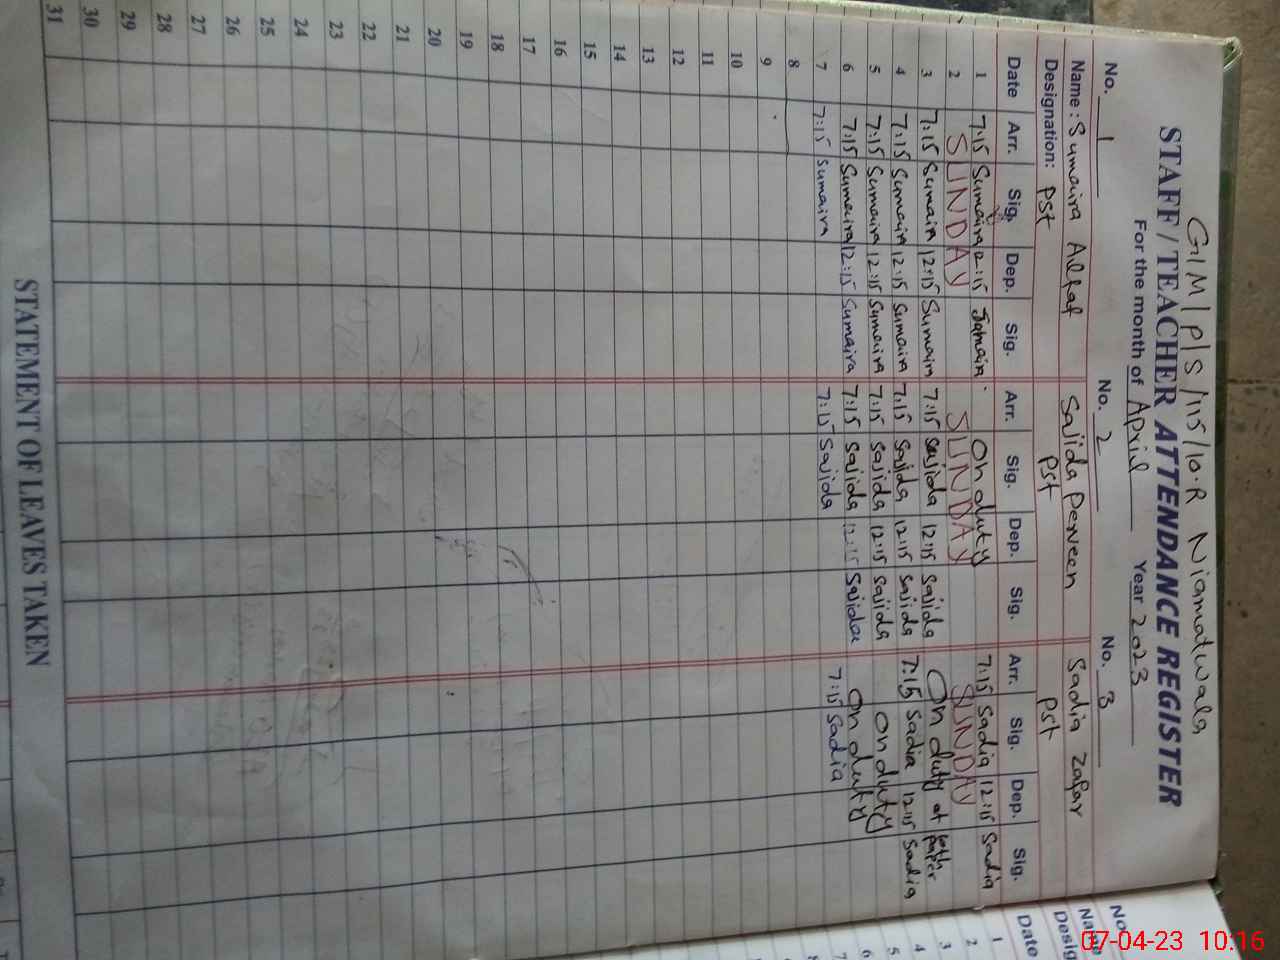 GIM/P/S/115/10.R Niamatwala
STAFF / TEACHER ATTENDANCE REGISTER
For the month of April Year 2023
No. 1 No. 2 No. 3
Name: Sumaira Afzal Sajida Perveen Sadia Zafar
Designation: PST PST PST
Date Arr. Sig. Dep. Sig. Arr. Sig. Dep. Sig. Arr. Sig. Dep. Sig.
1 7:15 Sumaira 12:15 Sumaira On duty 7:15 Sadia 12:15 Sadia
2 SUNDAY SUNDAY SUNDAY
3 7:15 Sumaira 12:15 Sumaira 7:15 Sajida 12:15 Sajida On duty at paper
4 7:15 Sumaira 12:15 Sumaira 7:15 Sajida 12:15 Sajida 7:15 Sadia 12:15 Sadia
5 7:15 Sumaira 12:15 Sumaira 7:15 Sajida 12:15 Sajida On duty
6 7:15 Sumaira 12:15 Sumaira 7:15 Sajida 12:15 Sajida On duty
7 7:15 Sumaira 7:15 Sajida 7:15 Sadia
8
9
10
11
12
13
14
15
16
17
18
19
20
21
22
23
24
25
26
27
28
29
30
31
STATEMENT OF LEAVES TAKEN
No.
Name
Desig
Date
1
2
3
4
5
6
7
07-04-23 10:16